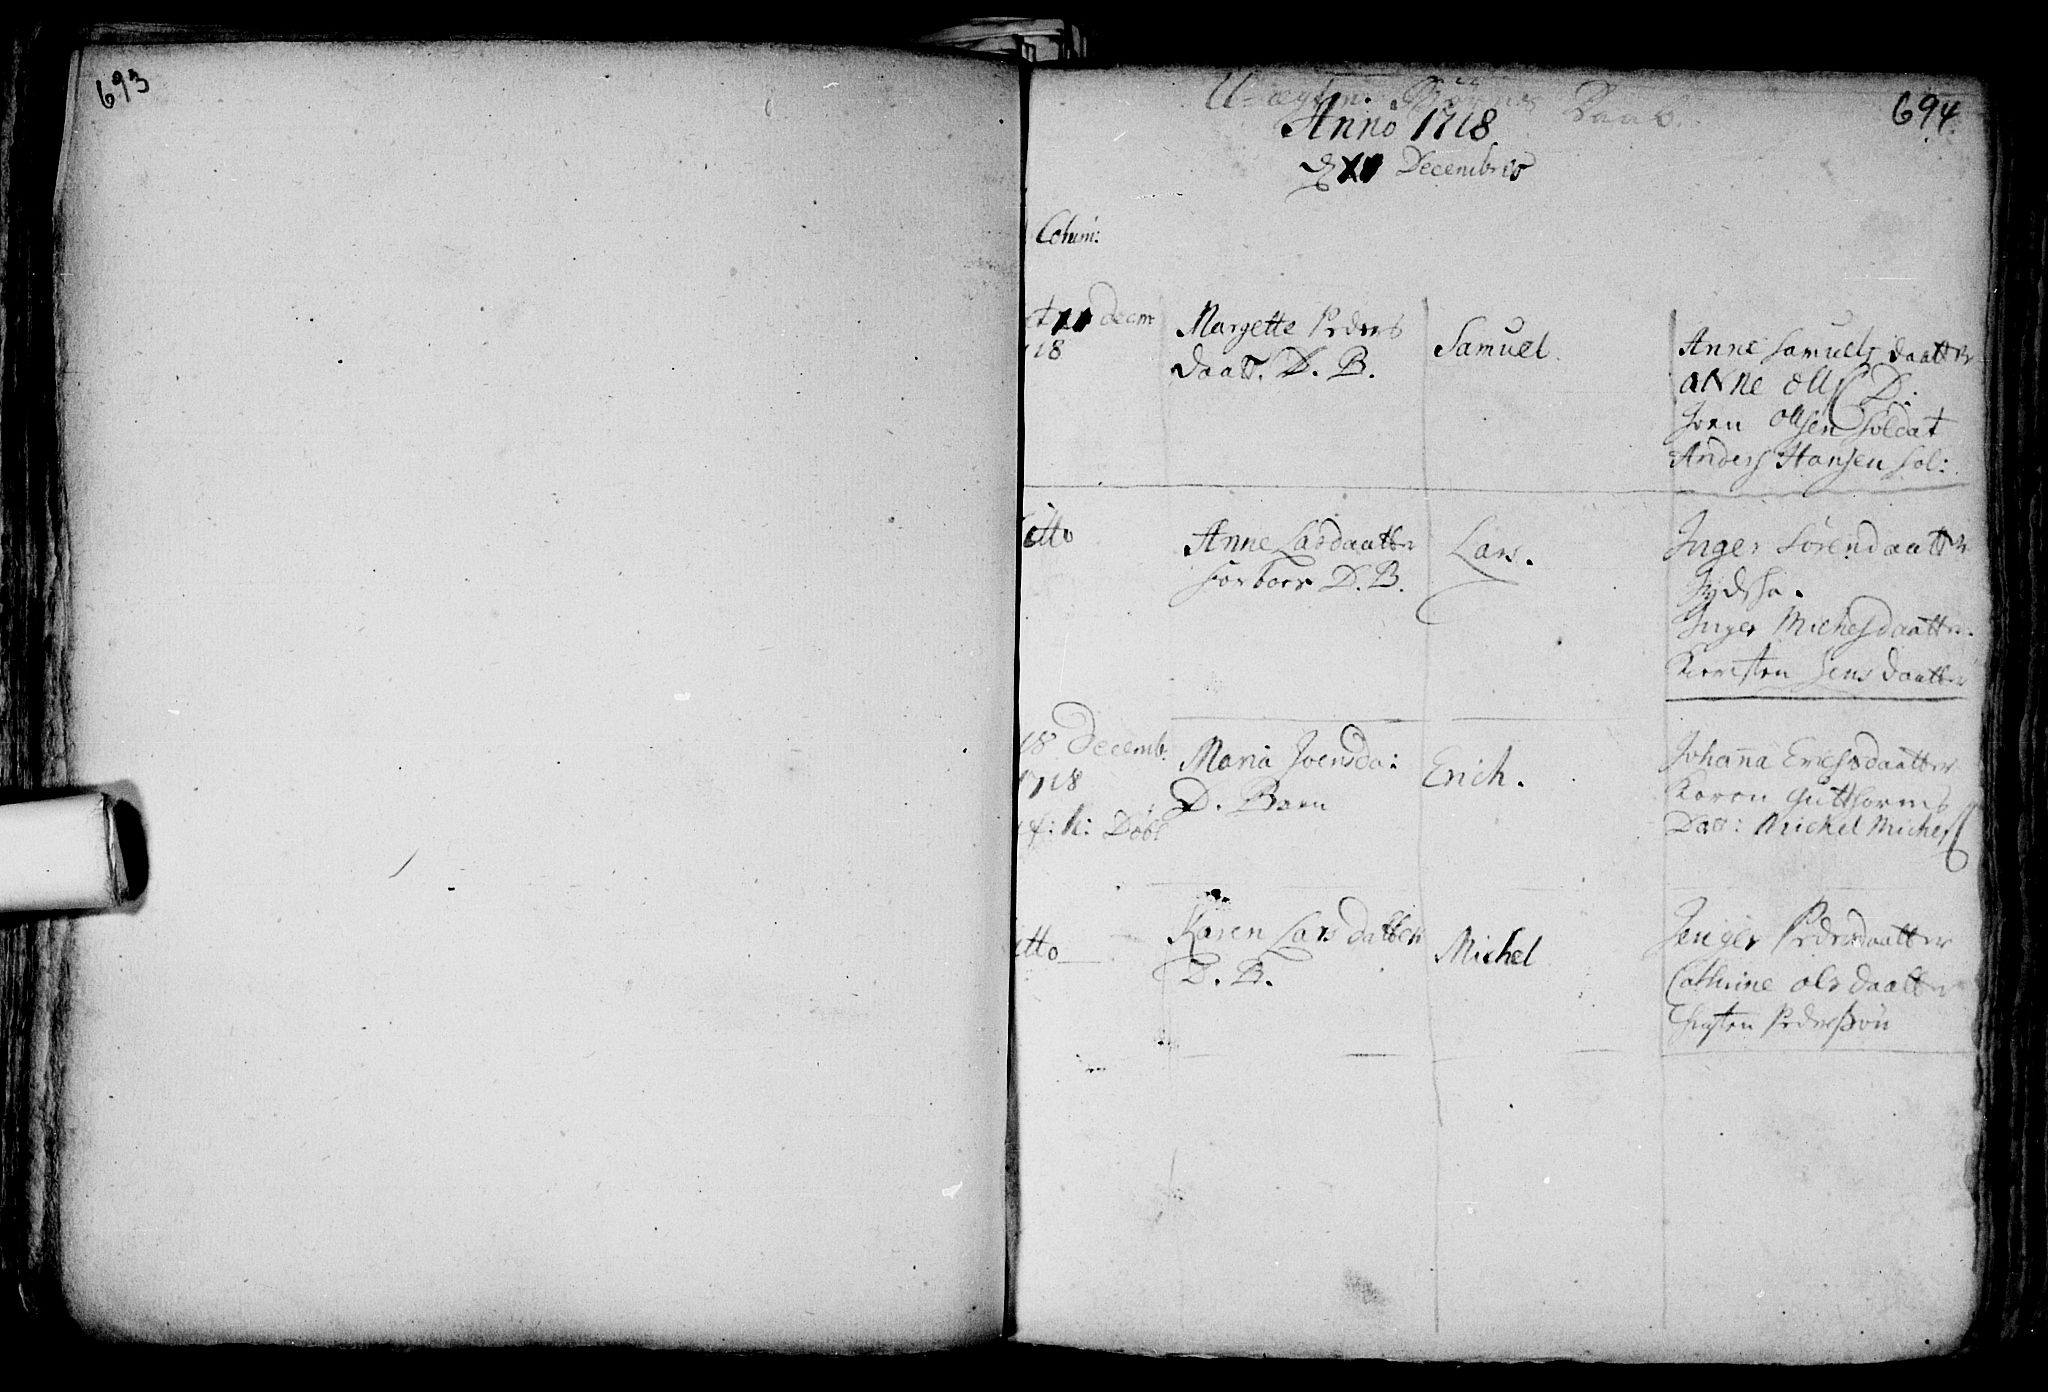 693
694
U-ægte Børns Daab.
Anno 1718
Decembris
Colum:
Decm
18
Margette Peders
daatt. D. B.
Samuel.
Anne Samuels daatter
anne Olls D:
Joen Ollsen Soldat
Anders Hansen Sol:
itto
Anne Larsdaatter
D. B.
Lars.
Inger Sørendaatter
Jydska.
Inger Michelsdaatter.
Kiersten Jens daatter
18 Decemb.
1718
Maria Joensda:
D. Barn
Erich.
Johanna Erichsdaatter
Karen Gutthorms
Datt: Mickel Michels
itto
Karen Lars datter
D. B.
Michel
Jenger Pedersdaatter
Cathrine Olsdaatter
Christen Pedersøn